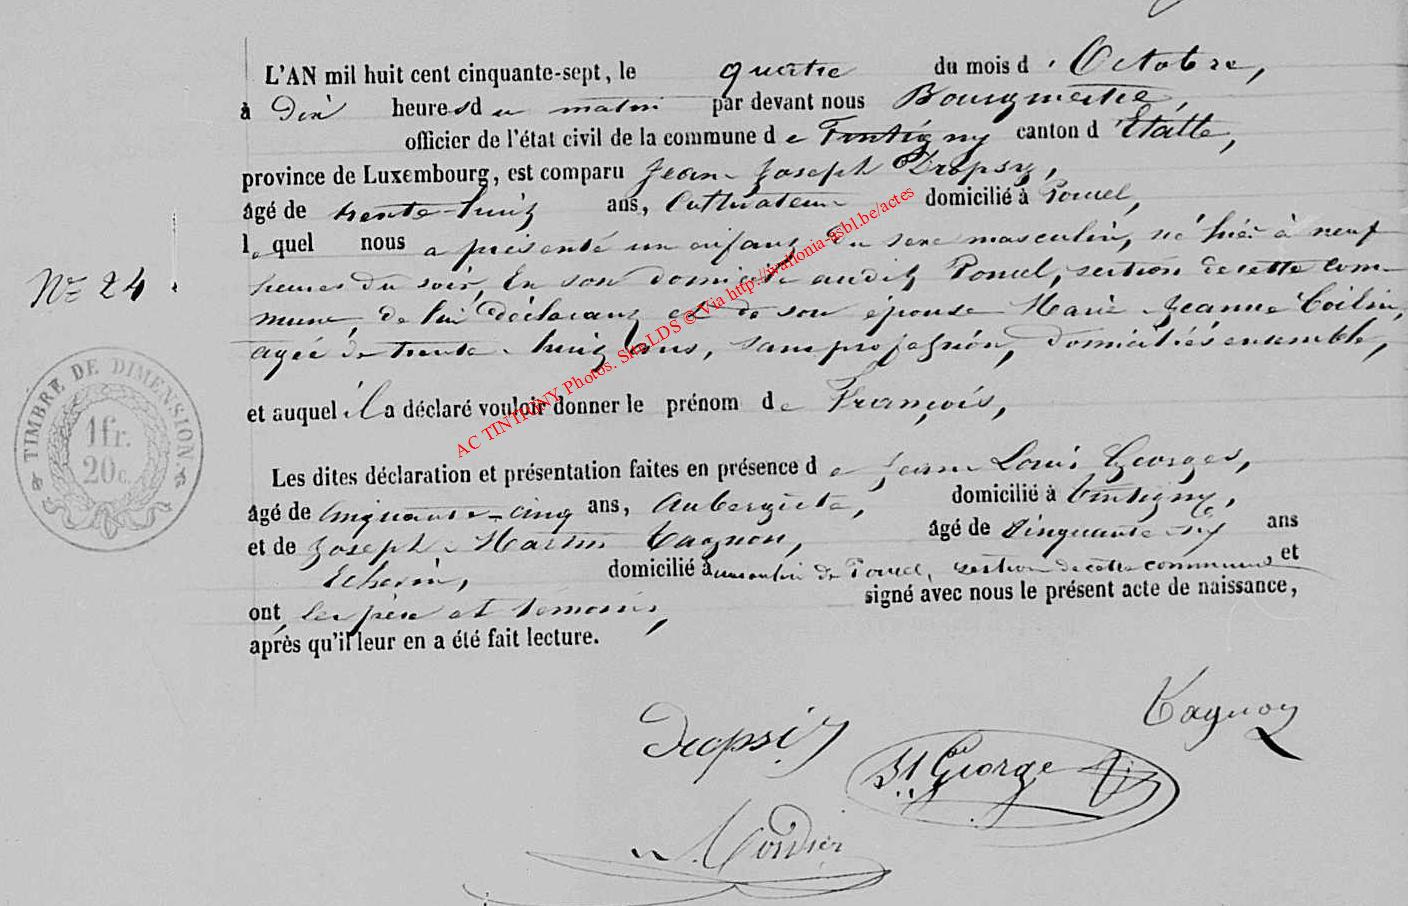 L'AN mil huit cent cinquante-sept, le quatre du mois d'Octobre,
à Dix heures du matin par devant nous Bourgmestre,
officier de l'état civil de la commune de Tintigny canton d'Etalle,
province de Luxembourg, est comparu Jean Joseph Dropsy,
âgé de trente-huit ans, Cultivateur domicilié à Poncel,
lequel nous a présenté un enfant du sexe masculin, né hier à neuf
Nº 24
heures du soir, en son domicile audit Poncel, section de cette com-
mune, de lui Déclarant et de son épouse Marie Jeanne
agée de trente-huit ans, sans profession, domiciliés ensemble,
et auquel il a déclaré vouloir donner le prénom de François,
Les dites déclaration et présentation faites en présence de Jean Louis Georges,
âgé de cinquante-cinq ans, Aubergiste, domicilié à Tintigny,
et de Joseph Martin Tagnon, âgé de Cinquante six ans
Echevin, domicilié à moulin de Poncel, section de cette commune, et
ont les père et témoins, signé avec nous le présent acte de naissance,
après qu'il leur en a été fait lecture.
TIMBRE DE DIMENSION
1 fr.
20 c.
AC TINTIGNY Photos. Site LDS © Via http://wallonia-asbl.be/actes
Tagnon
Dropsiy
George